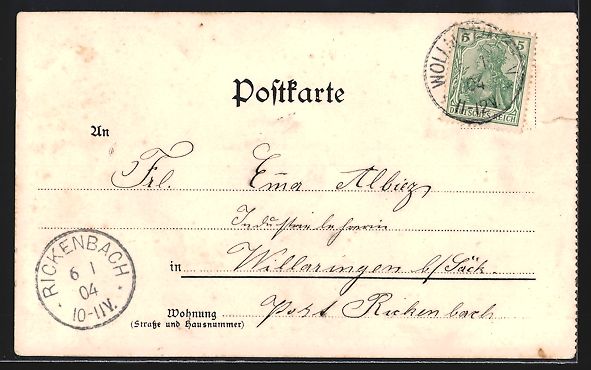 Postkarte
5 5
DEUTSCHES REICH
04
11-12V.
An
Frl. Ema Albiez
Industrielehrerin
in Willaringen b/Säck.
Wohnung Post Rickenbach
(Straße und Hausnummer)
RICKENBACH
6 1
04
10-11V.